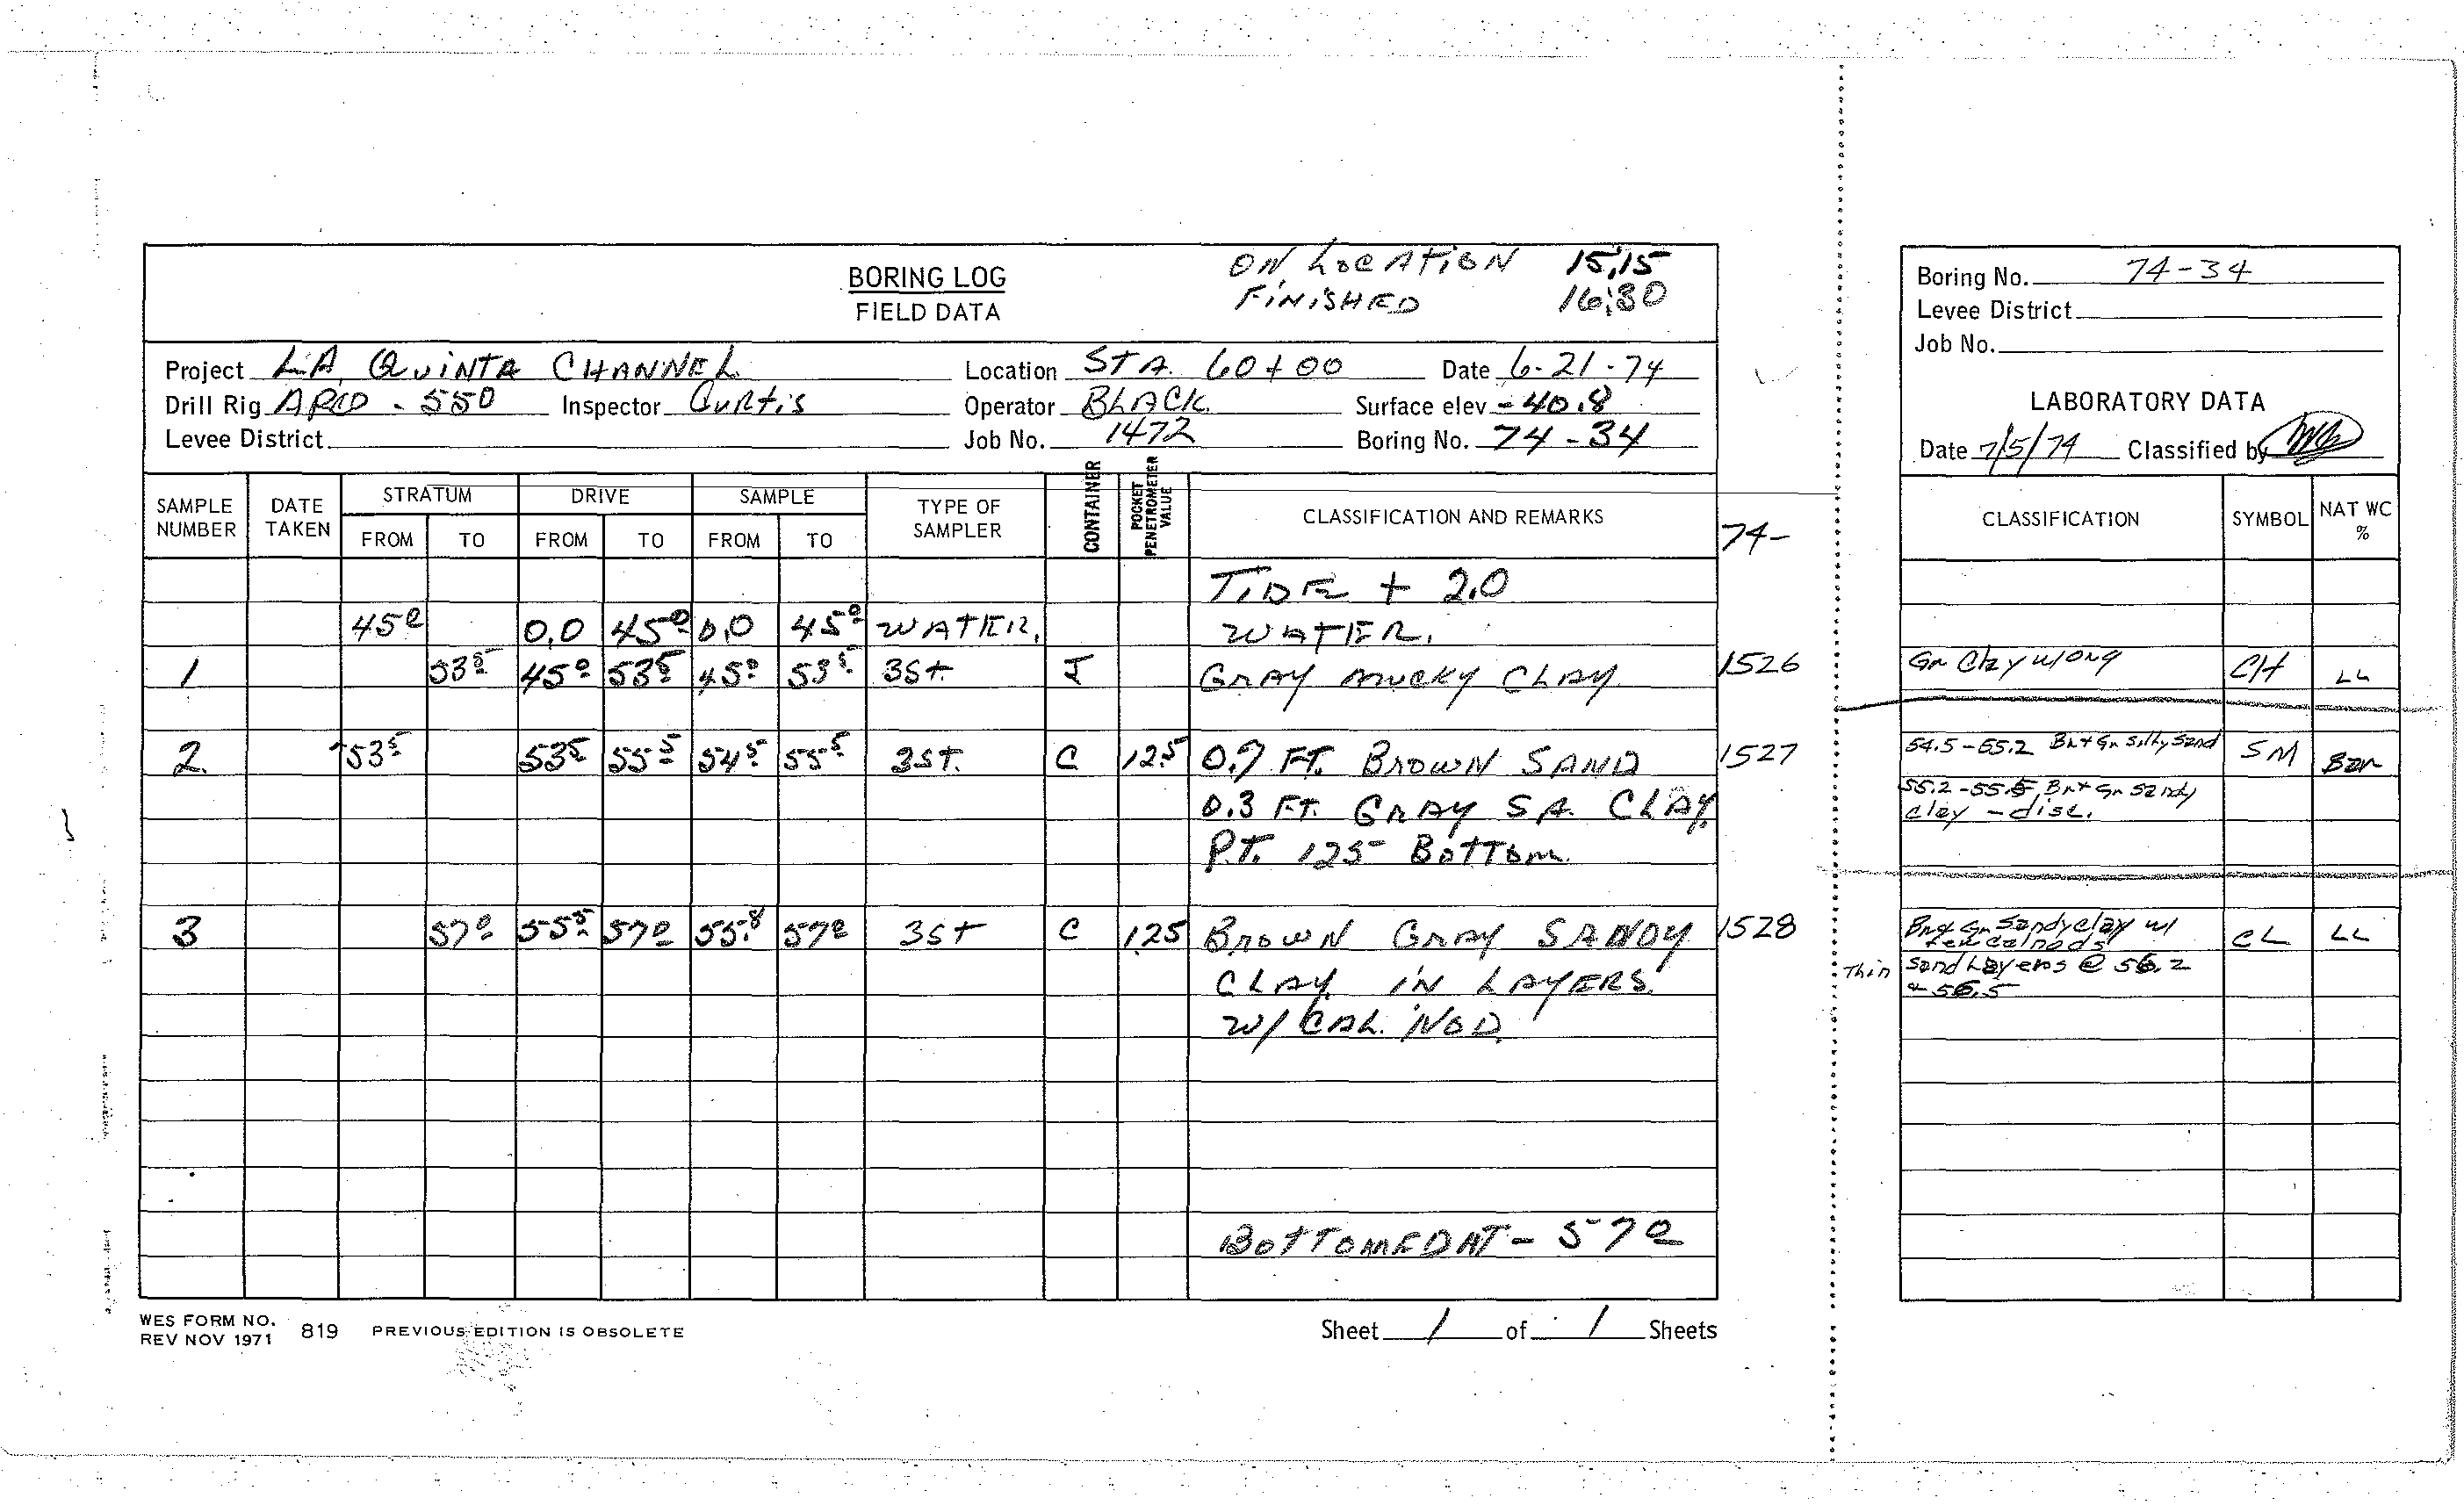 BORING LOG
FIELD DATA
ON LOCATION 15:15
FINISHED 16:30
Project LA QUINTA CHANNEL Location STA. 60+00 Date 6-21-74
Drill Rig ARCO - 550 Inspector Curtis Operator BLACK Surface elev -40.8
Levee District Job No. 1472 Boring No. 74-34
SAMPLE NUMBER DATE TAKEN STRATUM FROM TO DRIVE FROM TO SAMPLE FROM TO TYPE OF SAMPLER CONTAINER POCKET PENETROMETER VALUE CLASSIFICATION AND REMARKS 74-
TIDE + 2.0
45.0 0.0 45.0 0.0 45.0 WATER. WATER.
1 53.5 45.0 53.5 45.0 53.5 3St. J GRAY MUCKY CLAY. 1526
2. 53.5 53.5 55.5 54.5 55.5 3ST. C 1.25 0.7 FT. BROWN SAND 1527
0.3 FT. GRAY SA. CLAY.
P.T. 125 BOTTOM.
3 57.0 55.5 57.0 55.8 57.0 3ST C 1.25 BROWN GRAY SANDY 1528
CLAY IN LAYERS.
W/ CAL. NOD.
BOTTOMED AT - 57.0
WES FORM NO. 819 PREVIOUS EDITION IS OBSOLETE
REV NOV 1971
Sheet 1 of 1 Sheets
Boring No. 74-34
Levee District
Job No.
LABORATORY DATA
Date 7/5/74 Classified by
CLASSIFICATION SYMBOL NAT WC %
Gr Clay w/org CH LL
54.5-55.2 Br+Gr Silty Sand SM Bar
55.2-55.5, Br+Gr Sandy
clay - disc.
Br+Gr Sandy clay w/ CL LL
few cal nods
Thin Sand Layers @ 56.2
& 56.5